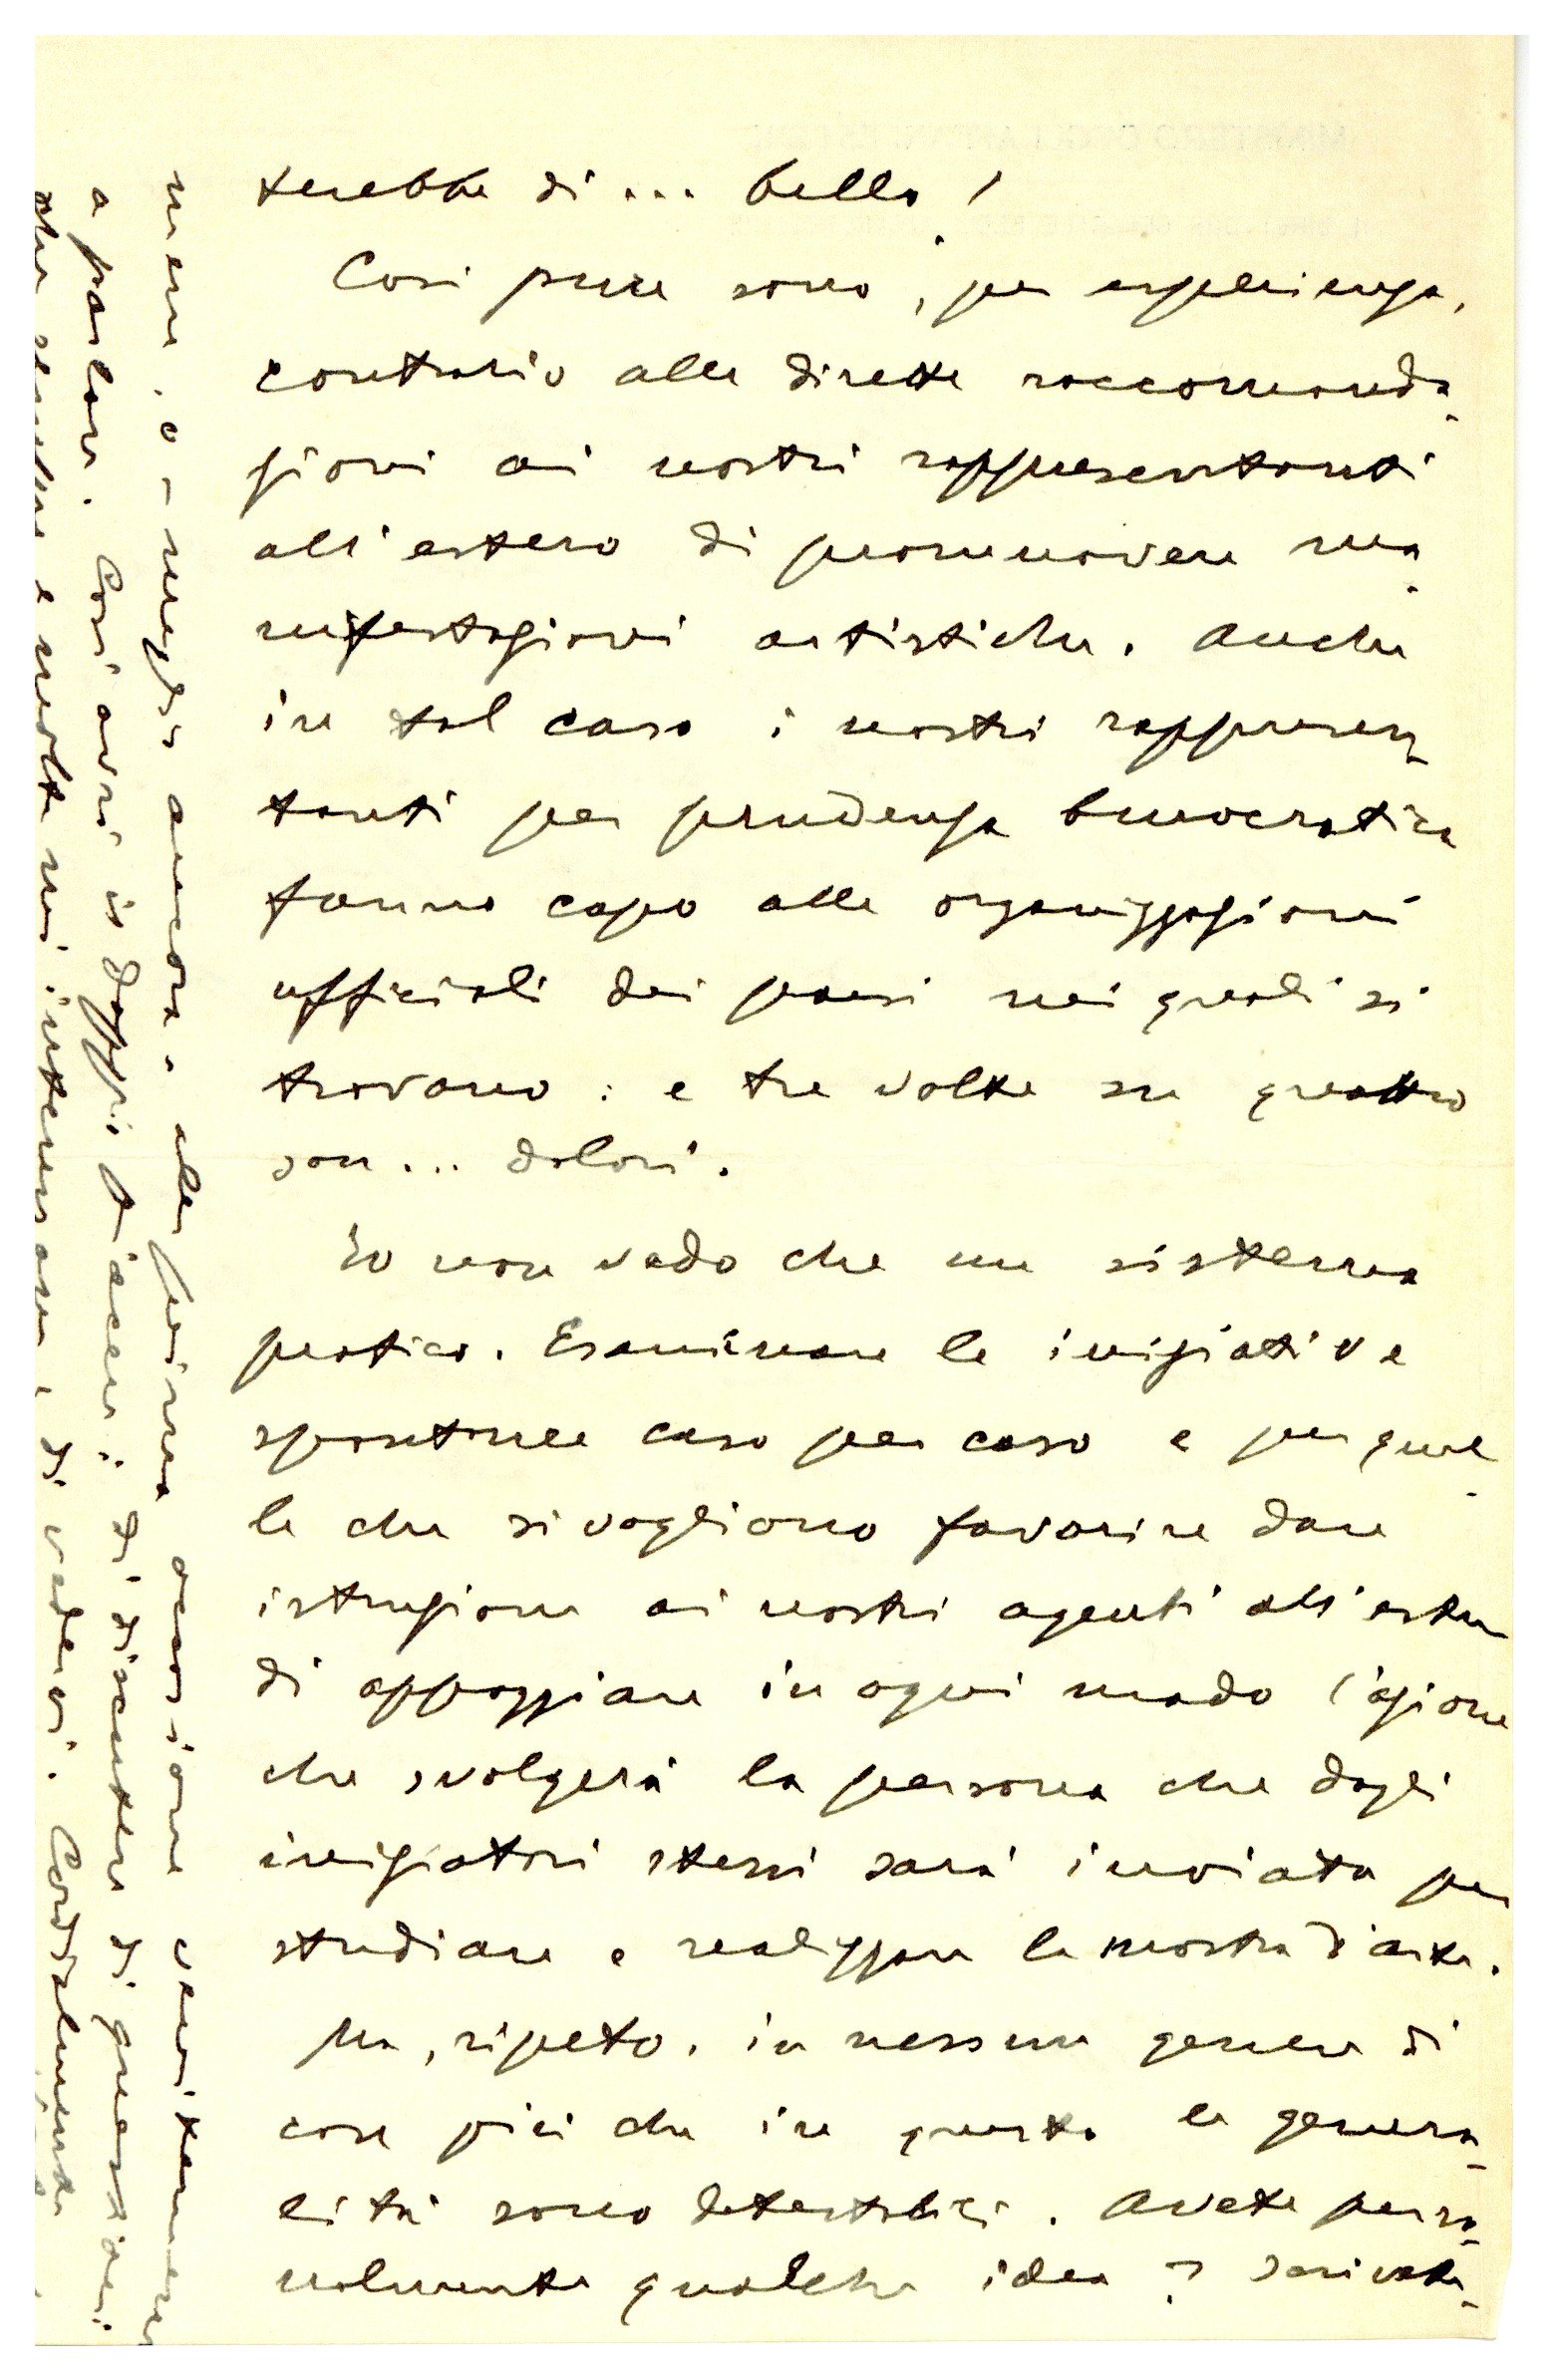 terebbe di... bello!
Così pure sono, per esperienza,
contrario alle dirette raccomanda-
zioni ai nostri rappresentanti
all'estero di promuovere ma-
nifestazioni artistiche. Anche
in tal caso i nostri rappresen-
tanti per prudenza burocratica
fanno capo alle organizzazioni
ufficiali dei paesi nei quali si
trovano: e tre volte su quattro
son... dolori.
Io non vedo che un sistema
pratico. Esaminare le iniziative
spontanee caso per caso e per quel-
le che si vogliono favorire dare
istruzione ai nostri agenti all'estero
di appoggiare in ogni modo l'azione
che svolgerà la persona che dagli
iniziatori stessi sarà inviata per
studiare e realizzare la mostra d'arte.
Ma, ripeto, in nessun genere di
cose più che in questo le genera-
lità sono detestabili. Avete perso-
nalmente qualche idea? Scrivete-
mene, o - meglio ancora - alla prima occasione venitemene
a parlare. Così avrò il doppio piacere: di discutere di questioni
che e molto mi interessano, di vedervi. Cordialmente